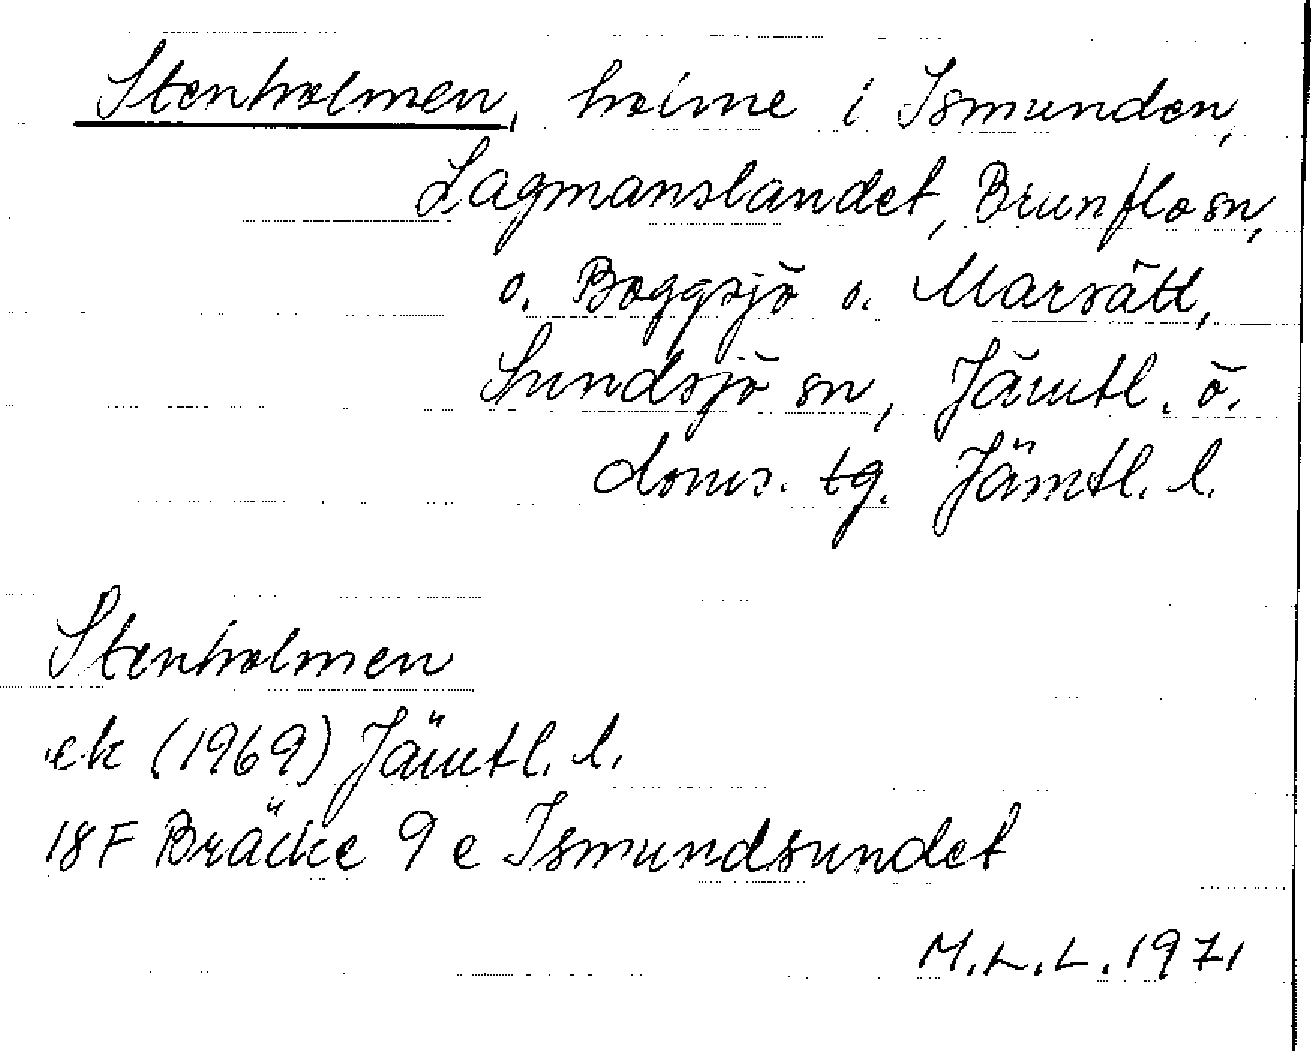 Stenholmen, holme i Ismunden,
Lagmanslandet, Brunflo sn,
o. Boggsjö o. Marsätt,
Sundsjö sn, Jämtl. ö.
doms. tg. Jämtl. l.
Stenholmen
ek (1969) Jämtl. l.
18 F Bräcke 9 e Ismundsundet
M.L.L. 1971